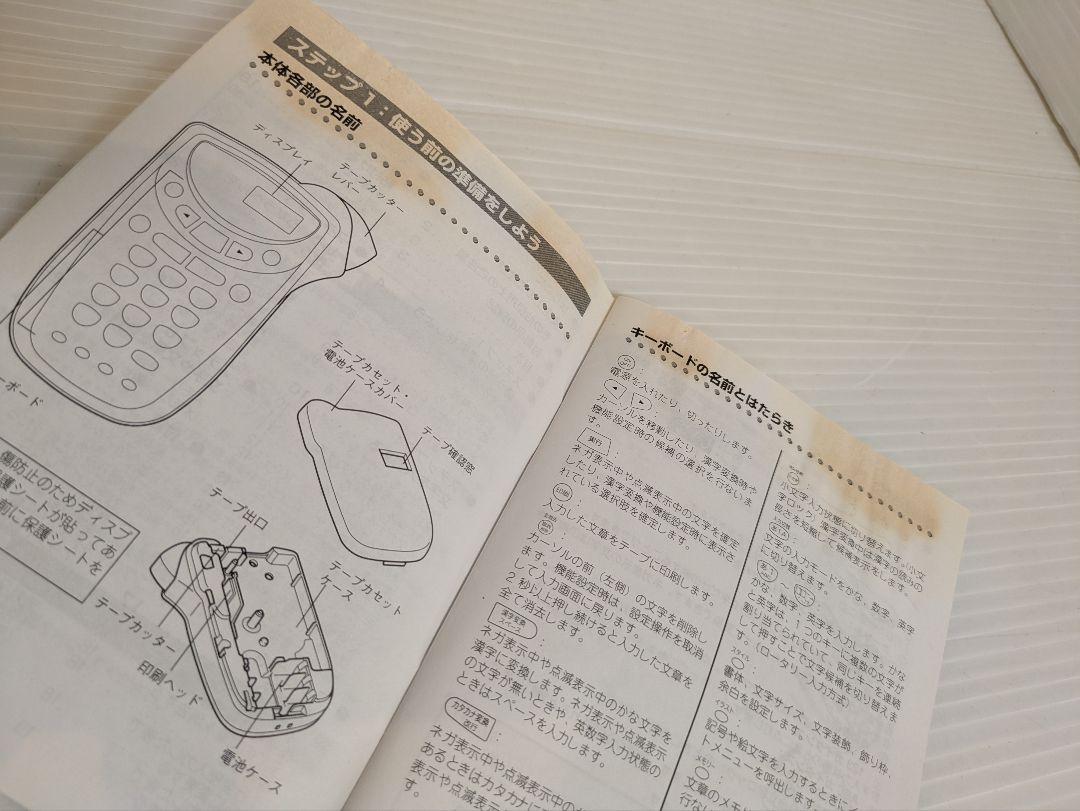 ステップ1：使う前の準備をしよう
本体各部の名前
ディスプレイ
テープカッター
レバー
ーボード
傷防止のためディスプ
護シートが貼ってあ
前に保護シートを
テープカセット・
電池ケースカバー
テープ確認窓
テープ出口
テープカセット
ケース
テープカッター
印刷ヘッド
電池ケース
キーボードの名前とはたらき
電源を入れたり、切ったりします。
カーソルを移動したり、漢字変換時や
機能設定時の候補の選択を行ないま
す。
実行
ネガ表示中や点滅表示中の文字を確定
したり、漢字変換や機能設定時に表示さ
れている選択肢を確定します。
印刷
入力した文章をテープに印刷します。
カーソルの前（左側）の文字を削除し
ます。機能設定時は、設定操作を取消
して入力画面に戻ります。
2秒以上押し続けると入力した文章を
全て消去します。
漢字変換
スペース
ネガ表示中や点滅表示中のかな文字を
漢字に変換します。ネガ表示や点滅表示
の文字が無いときや、英数字入力状態の
ときはスペースを入力します。
カタカナ変換
改行
ネガ表示中や点滅表示中の
あるときはカタカナに
表示や点滅表示
す。
小文字入力状態に切り替えます。（小文
字ロック）漢字変換中は漢字の読みの
長さを短縮して候補表示をします。
文字の入力モードをかな、数字、英字
に切り替えます。
かな、数字、英字を入力します。かな
と英字は、1つのキーに複数の文字が
割り当てられていて、同じキーを連続
して押すことで文字候補を切り替えま
す。（ロータリー入力方式）
スタイル
書体、文字サイズ、文字装飾、飾り枠、
余白を設定します。
イラスト
記号や絵文字を入力するときに
トメニューを呼出します
メモリー
文章のメモリ
行ない